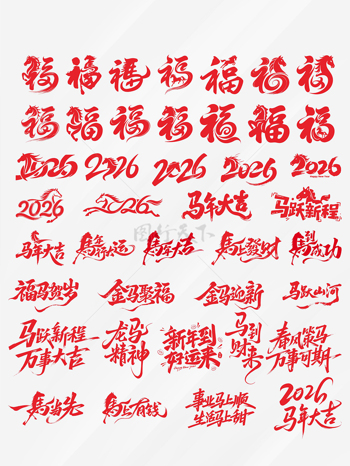 福 福 福 福 福 福 福
福 福 福 福 福 福 福
2026 2026 2026 2026 2026
2026 2026 马年大吉 马跃新程
马年大吉 馬年大运 馬年大吉 馬上發财 馬到成功
福马贺岁 金马聚福 金马迎新 马跃山河
马跃新程 万事大吉 龙马精神 新年到 好运来 马到财来 春风策马 万事可期
一馬当先 馬上有钱 事业马上顺 生活马上甜 2026 马年大吉